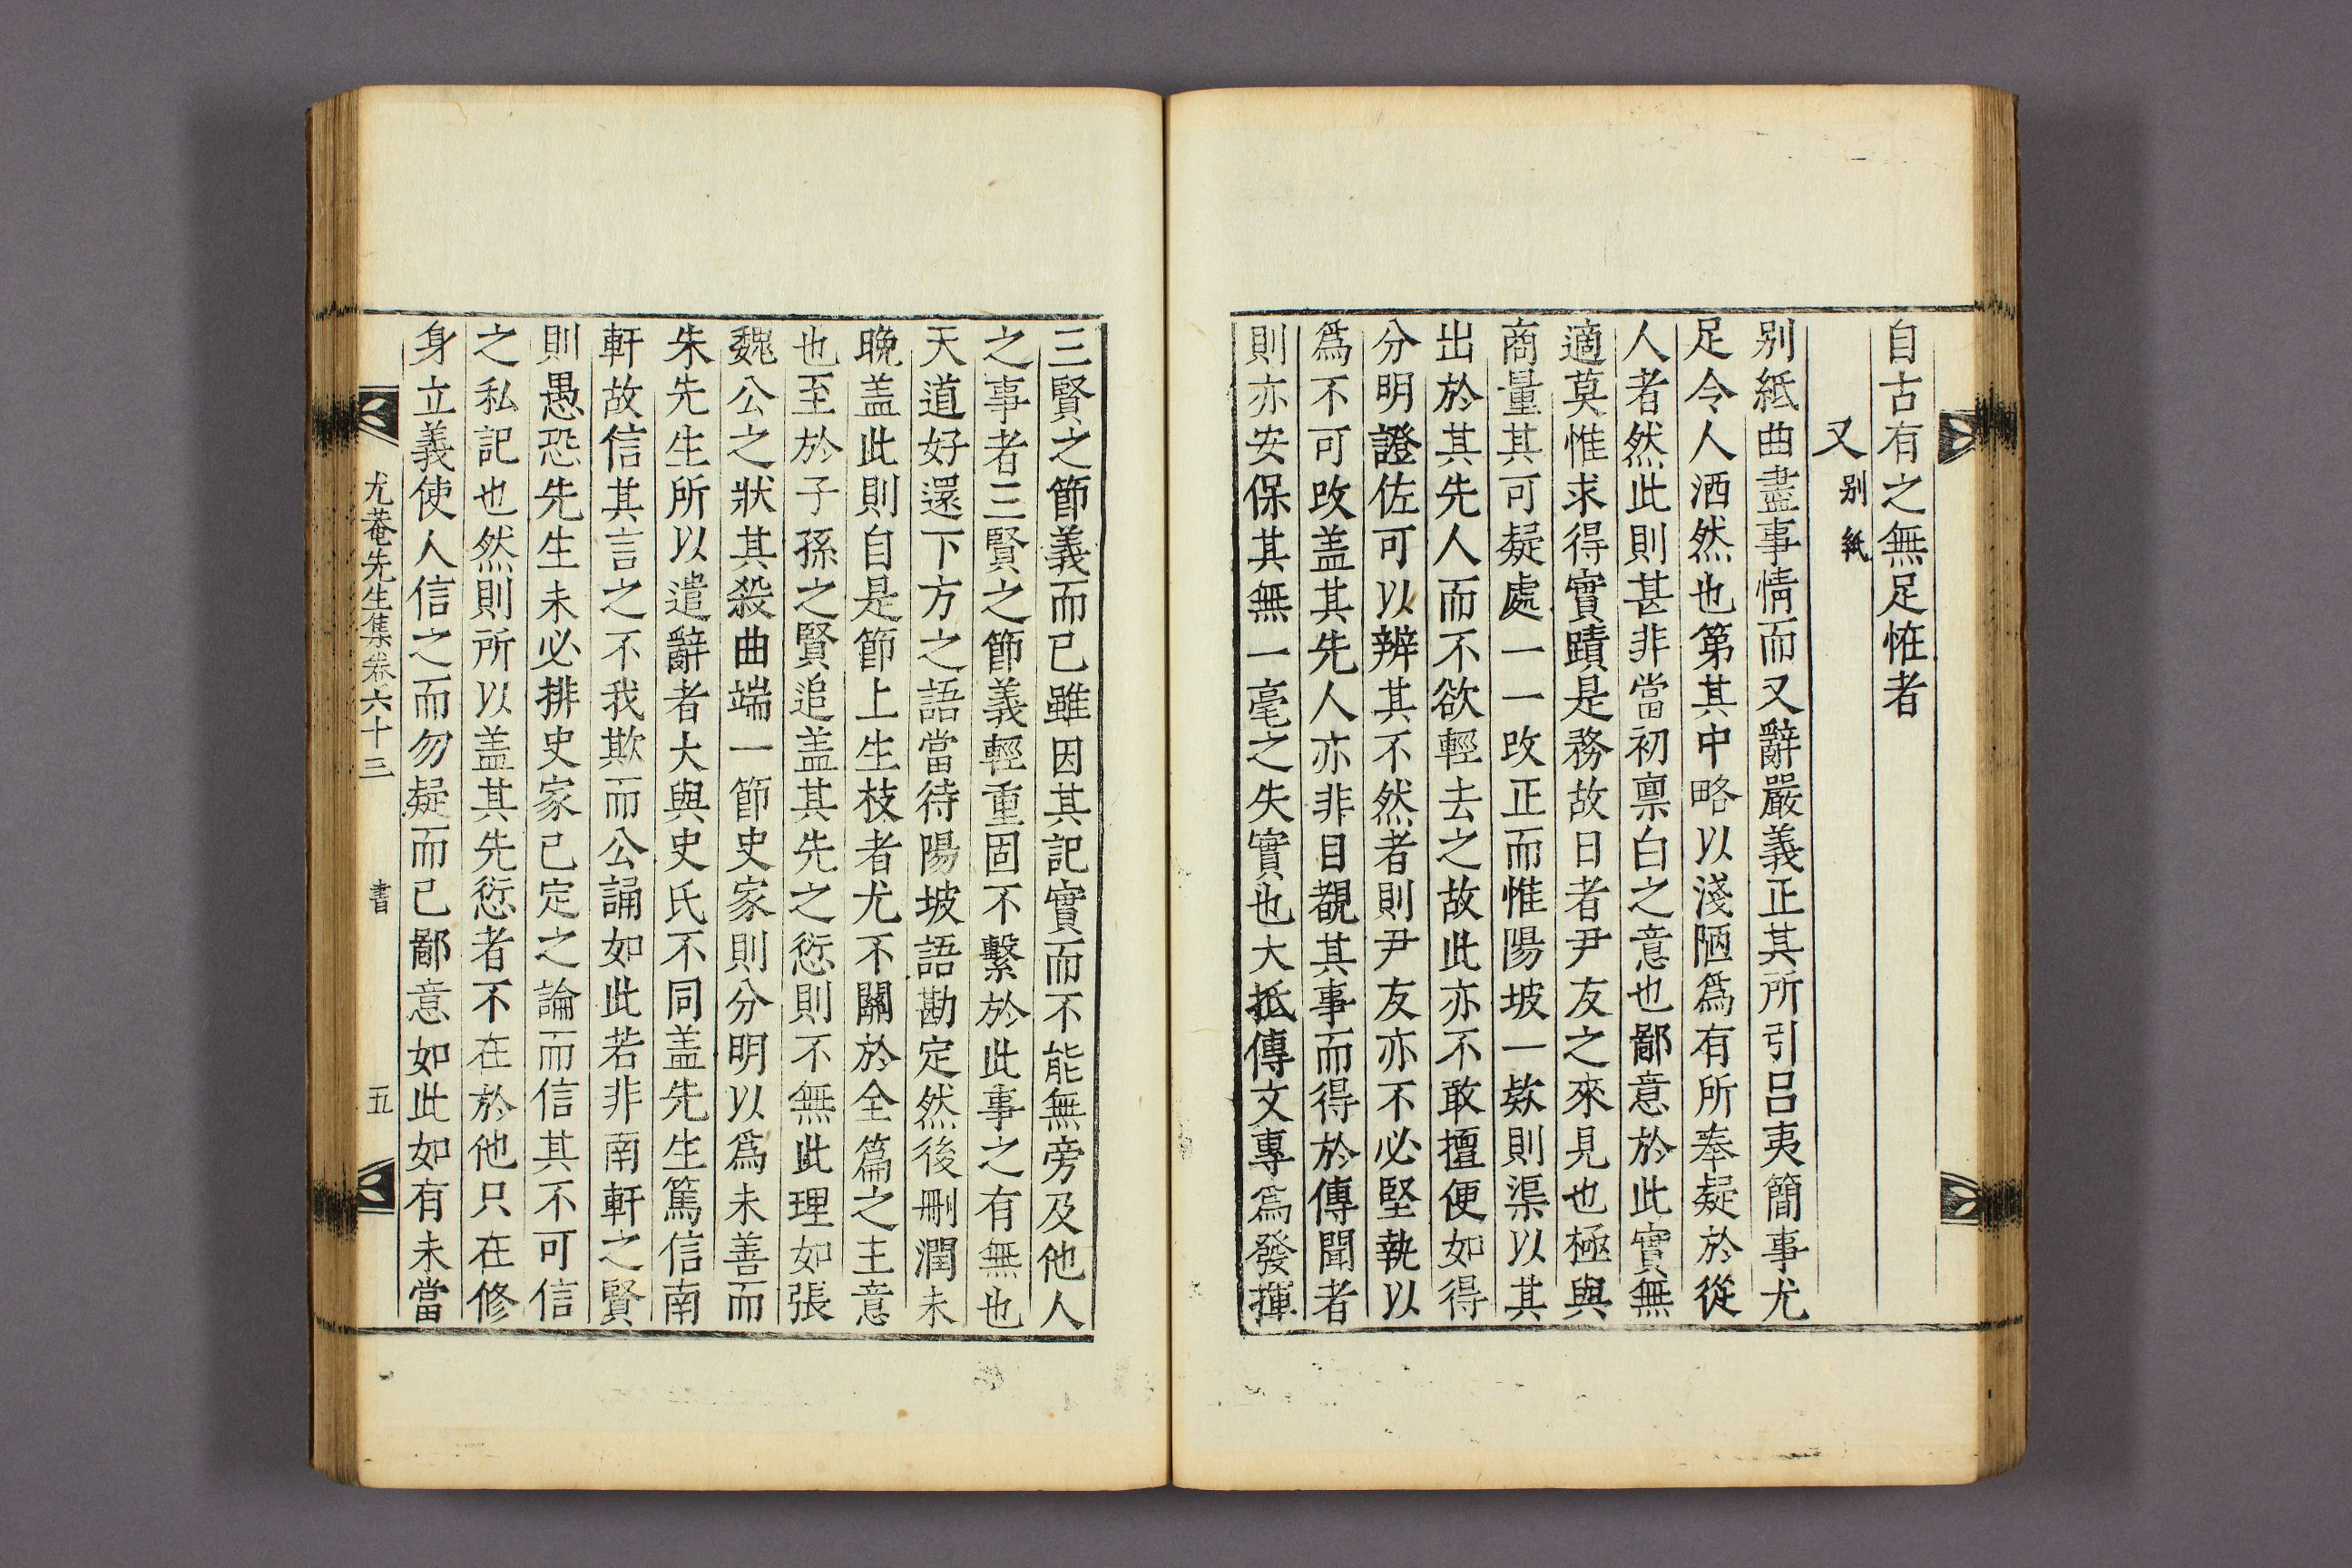 自古有之無足恠者
又别紙
别紙曲盡事情而又辭嚴義正其所引呂夷簡事尤
足令人洒然也第其中略以淺陋爲有所奉疑於從
人者然此則甚非當初禀白之意也鄙意於此實無
適莫惟求得實蹟是務故日者尹友之來見也極與
商量其可疑處一一改正而惟陽坡一欵則渠以其
出於其先人而不欲輕去之故此亦不敢擅便如得
分明證佐可以辨其不然者則尹友亦不必堅執以
爲不可改盖其先人亦非目覩其事而得於傳聞者
則亦安保其無一毫之失實也大抵傳文專爲發揮
三賢之節義而已雖因其記實而不能無旁及他人
之事者三賢之節義輕重固不繫於此事之有無也
天道好還下方之語當待陽坡語勘定然後刪潤未
晚盖此則自是節上生枝者尤不關於全篇之主意
也至於子孫之賢追盖其先之愆則不無此理如張
魏公之狀其殺曲端一節史家則分明以爲未善而
朱先生所以遣辭者大與史氏不同盖先生篤信南
軒故信其言之不我欺而公誦如此若非南軒之賢
則愚恐先生未必排史家已定之論而信其不可信
之私記也然則所以盖其先愆者不在於他只在修
身立義使人信之而勿疑而已鄙意如此如有未當
尤菴先生集卷六十三 書 五